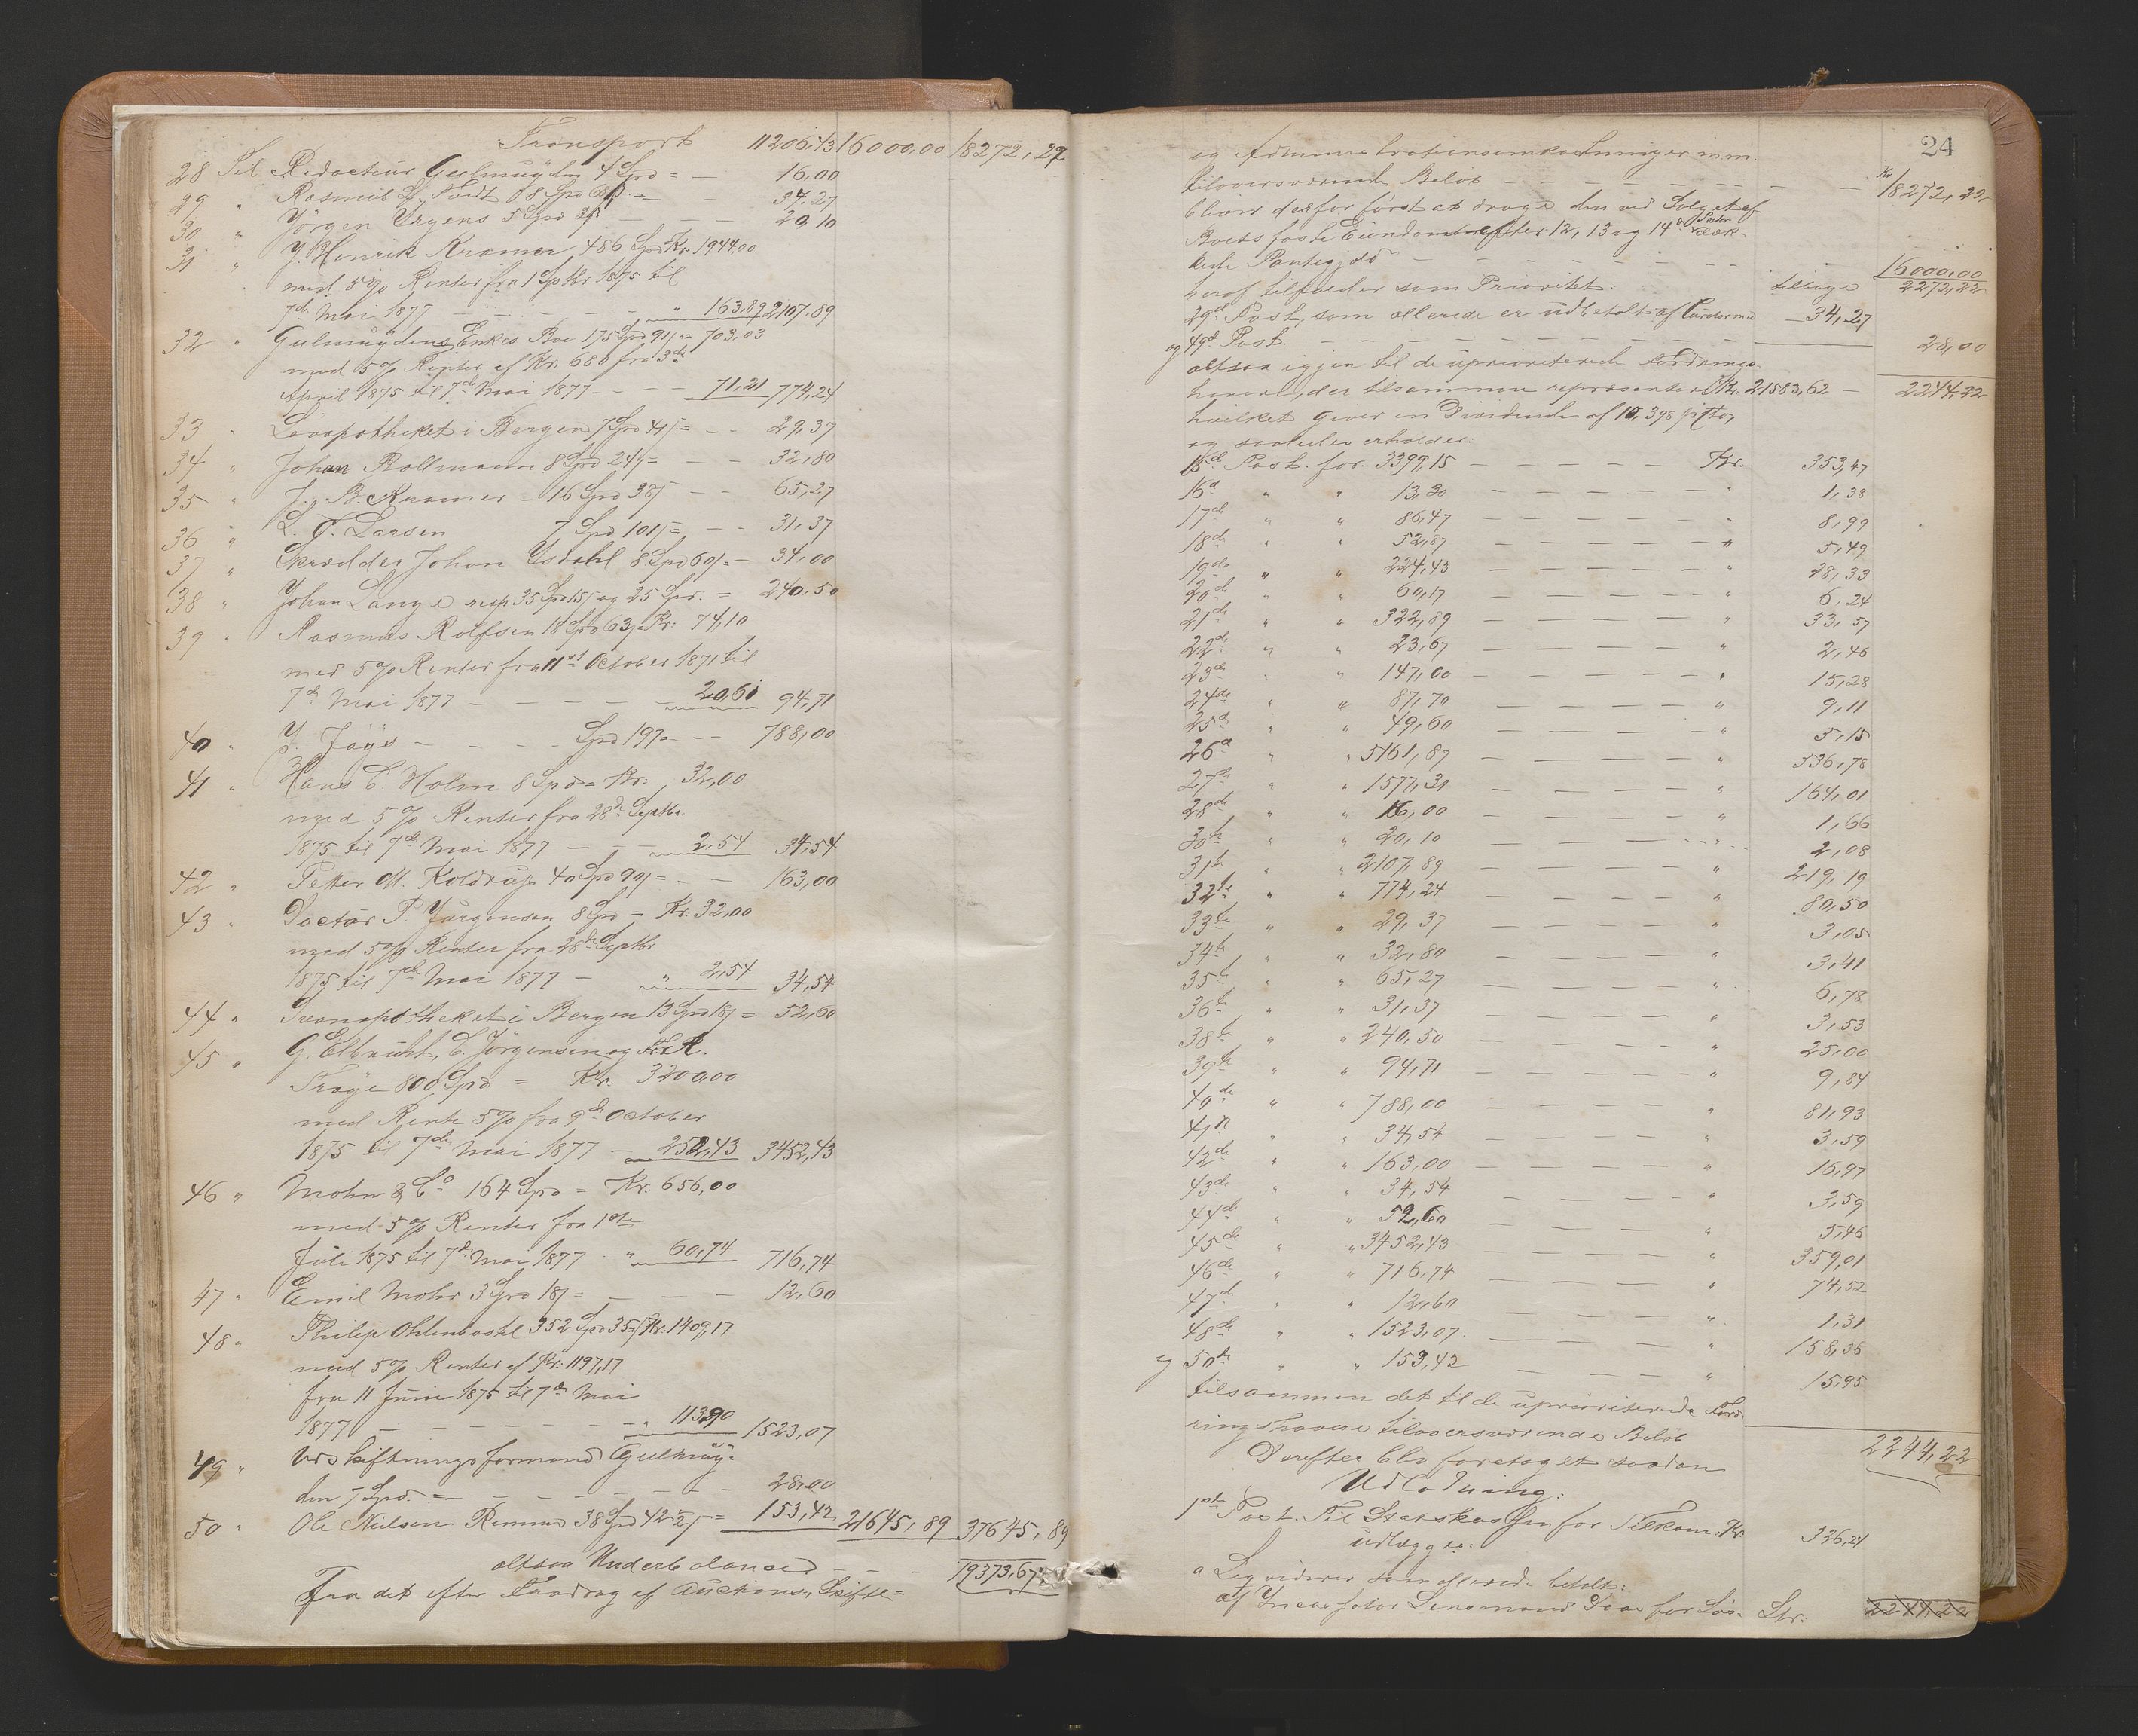 Transport 11206,43 16000,00 18272,22
28 Til Redacteur Gulmuyden 4 Spd = — 16,00
29 " Rasmus L. Tvedt 08 Spd 68 β = 34,27
30 " Jörgen Irgens 5 Spd 3 β — — — 20,10
31 " J. Henrik Kramer 486 Spd Kr. 1944,00
med 5 % Renter fra 1 Septbr 1875 til
7de Mai 1877 — — — — " 163,89 2107,89
32 " Gulmuydens Enkes Boe 175 Spd 91 β = 703,03
med 5 % Renter af Kr. 680 fra 3de
April 1875 til 7de Mai 1877 — — — 71,21 774,24
33 " Löveapotheket i Bergen 7 Spd 41 β = — — 29,37
34 " Johan Bollmann 8 Spd 24 β = — — 32,80
35 " J. B. Kramer = 16 Spd 38 β — — 65,27
36 " L. T. Larsen 7 Spd 101 β = — — 31,37
37 " Skrædder Johan Isdahl 8 Spd 60 β = — 34,00
38 " Johan Lange resp. 35 Spd 15 β og 25 Spd. = 240,50
39 " Rasmus Rolfsen 18 Spd 63 β = Kr: 74,10
med 5 % Renter fra 11te October 1871 til
7de Mai 1877 — — — — — 20,61 94,71
40 " J. Föye — — — — Spd 197 = — — 788,00
41 " Hans C. Holm 8 Spd = Kr: 32,00
med 5 % Renter fra 28de Septbr
1875 til 7de Mai 1877 — — — 2,54 34,54
42 " Petter M. Koldrup 40 Spd 90 β = — — 163,00
43 " Doctor P. Jürgensen 8 Spd = Kr: 32,00
med 5 % Renter fra 28de Septbr
1875 til 7de Mai 1877 — " 2,54 34,54
44 " Svaneapotheket i Bergen 13 Spd 18 β = 52,60
45 " G. Elbrücht, C. Jörgensen og Fr. A.
Troye 800 Spd = Kr. 3200,00
med Rente 5 % fra 9de October
1875 til 7de Mai 1877 — 252,43 3452,43
46 " Mohn & Co 164 Spd = Kr: 656,00
med 5 % Renter fra 1ste
Juli 1875 til 7de Mai 1877 " 60,74 716,74
47 " Emil Mohr 3 Spd 18 β = — — — 12,60
48 " Philip Ohlenbostel 352 Spd 35 β = Kr. 1409,17
med 5 % Renter af Kr: 1197,17
fra 11 Juni 1875 til 7de Mai
1877 — — — — — — " 113,90 1523,07
49 " Udskiftningsformand Gulmuy-
den 7 Spd. = — — — — — — 28,00
50 " Ole Nielsen Remmer 38 Spd 42 1/2 β = 153,42 21645,89 37645,89
altsaa Underbalance — — — 19373,67
Fra det efter Fradrag af Auctions, Skifte=
24
og Administrationsomkostninger m.m.
tiloversværende Beløb — — — — — — — Kr 18272,22
bliver derfor først at drage den ved Salget af
Boets faste Eiendom efter 12, 13 og 14de Poster dæk-
kede Pantegjæld — — — — — — — 16000,00
tilbage 2272,22
heraf tilfalder som Prioritet:
29de Post, som allerede er udbetalt af Curator med — 34,27
og 49de Post. — — — — — — — 28,00
altsaa igjen til de uprioriterede Fordrings-
havere, der tilsammen repræsenterer Kr. 21583,62 — 2244,22
hvilket giver en Dividende af 10,398 pCto,
og saaledes erholder:
15de Post. for. 3399,15 — — — — — Kr. 353,47
16de " " 13,30 — — — — — " 1,38
17de " " 86,47 — — — — — " 8,99
18de " " 52,87 — — — — — " 5,49
19de " " 224,43 — — — — — " 28,33
20de " " 60,17 — — — — — " 6,24
21de " " 322,89 — — — — — " 33,57
22de " " 23,67 — — — — — " 2,46
23de " " 147,00 — — — — — " 15,28
24de " " 87,70 — — — — — " 9,11
25de " " 49,60 — — — — — " 5,15
26de " " 5161,87 — — — — — " 536,78
27de " " 1577,31 — — — — — " 164,01
28de " " 16,00 — — — — — " 1,66
30te " " 20,10 — — — — — " 2,08
31te " " 2107,89 — — — — — " 219,19
32te " " 774,24 — — — — — " 80,50
33te " " 29,37 — — — — — " 3,05
34te " " 32,80 — — — — — " 3,41
35te " " 65,27 — — — — — " 6,78
36te " " 31,37 — — — — — " 3,53
38te " " 240,50 — — — — — " 25,00
39te " " 94,71 — — — — — " 9,84
40de " " 788,00 — — — — — " 81,93
41de " " 34,54 — — — — — " 3,59
42de " " 163,00 — — — — — " 16,97
43de " " 34,54 — — — — — " 3,59
44de " " 52,60 — — — — — " 5,46
45de " " 3452,43 — — — — — " 359,01
46de " " 716,74 — — — — — " 74,52
47de " " 12,60 — — — — — " 1,31
48de " " 1523,07 — — — — — " 158,36
og 50de " " 153,42 — — — — — " 15,95
tilsammen det til de uprioriterede Ford-
ringshavere tiloversværende Beløb 2244,22
Derefter blev foretaget saadan
Udlodning:
1ste Post. Til Statskassen for Kr. 326,24
udlægges:
a som allerede betalt:
af Lensmand for Ltr: 2244,22